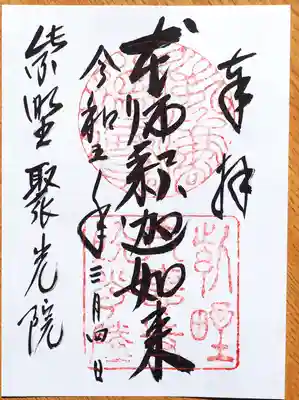 奉拝
本師釈迦如来
令和五年三月四日
紫野 聚光院